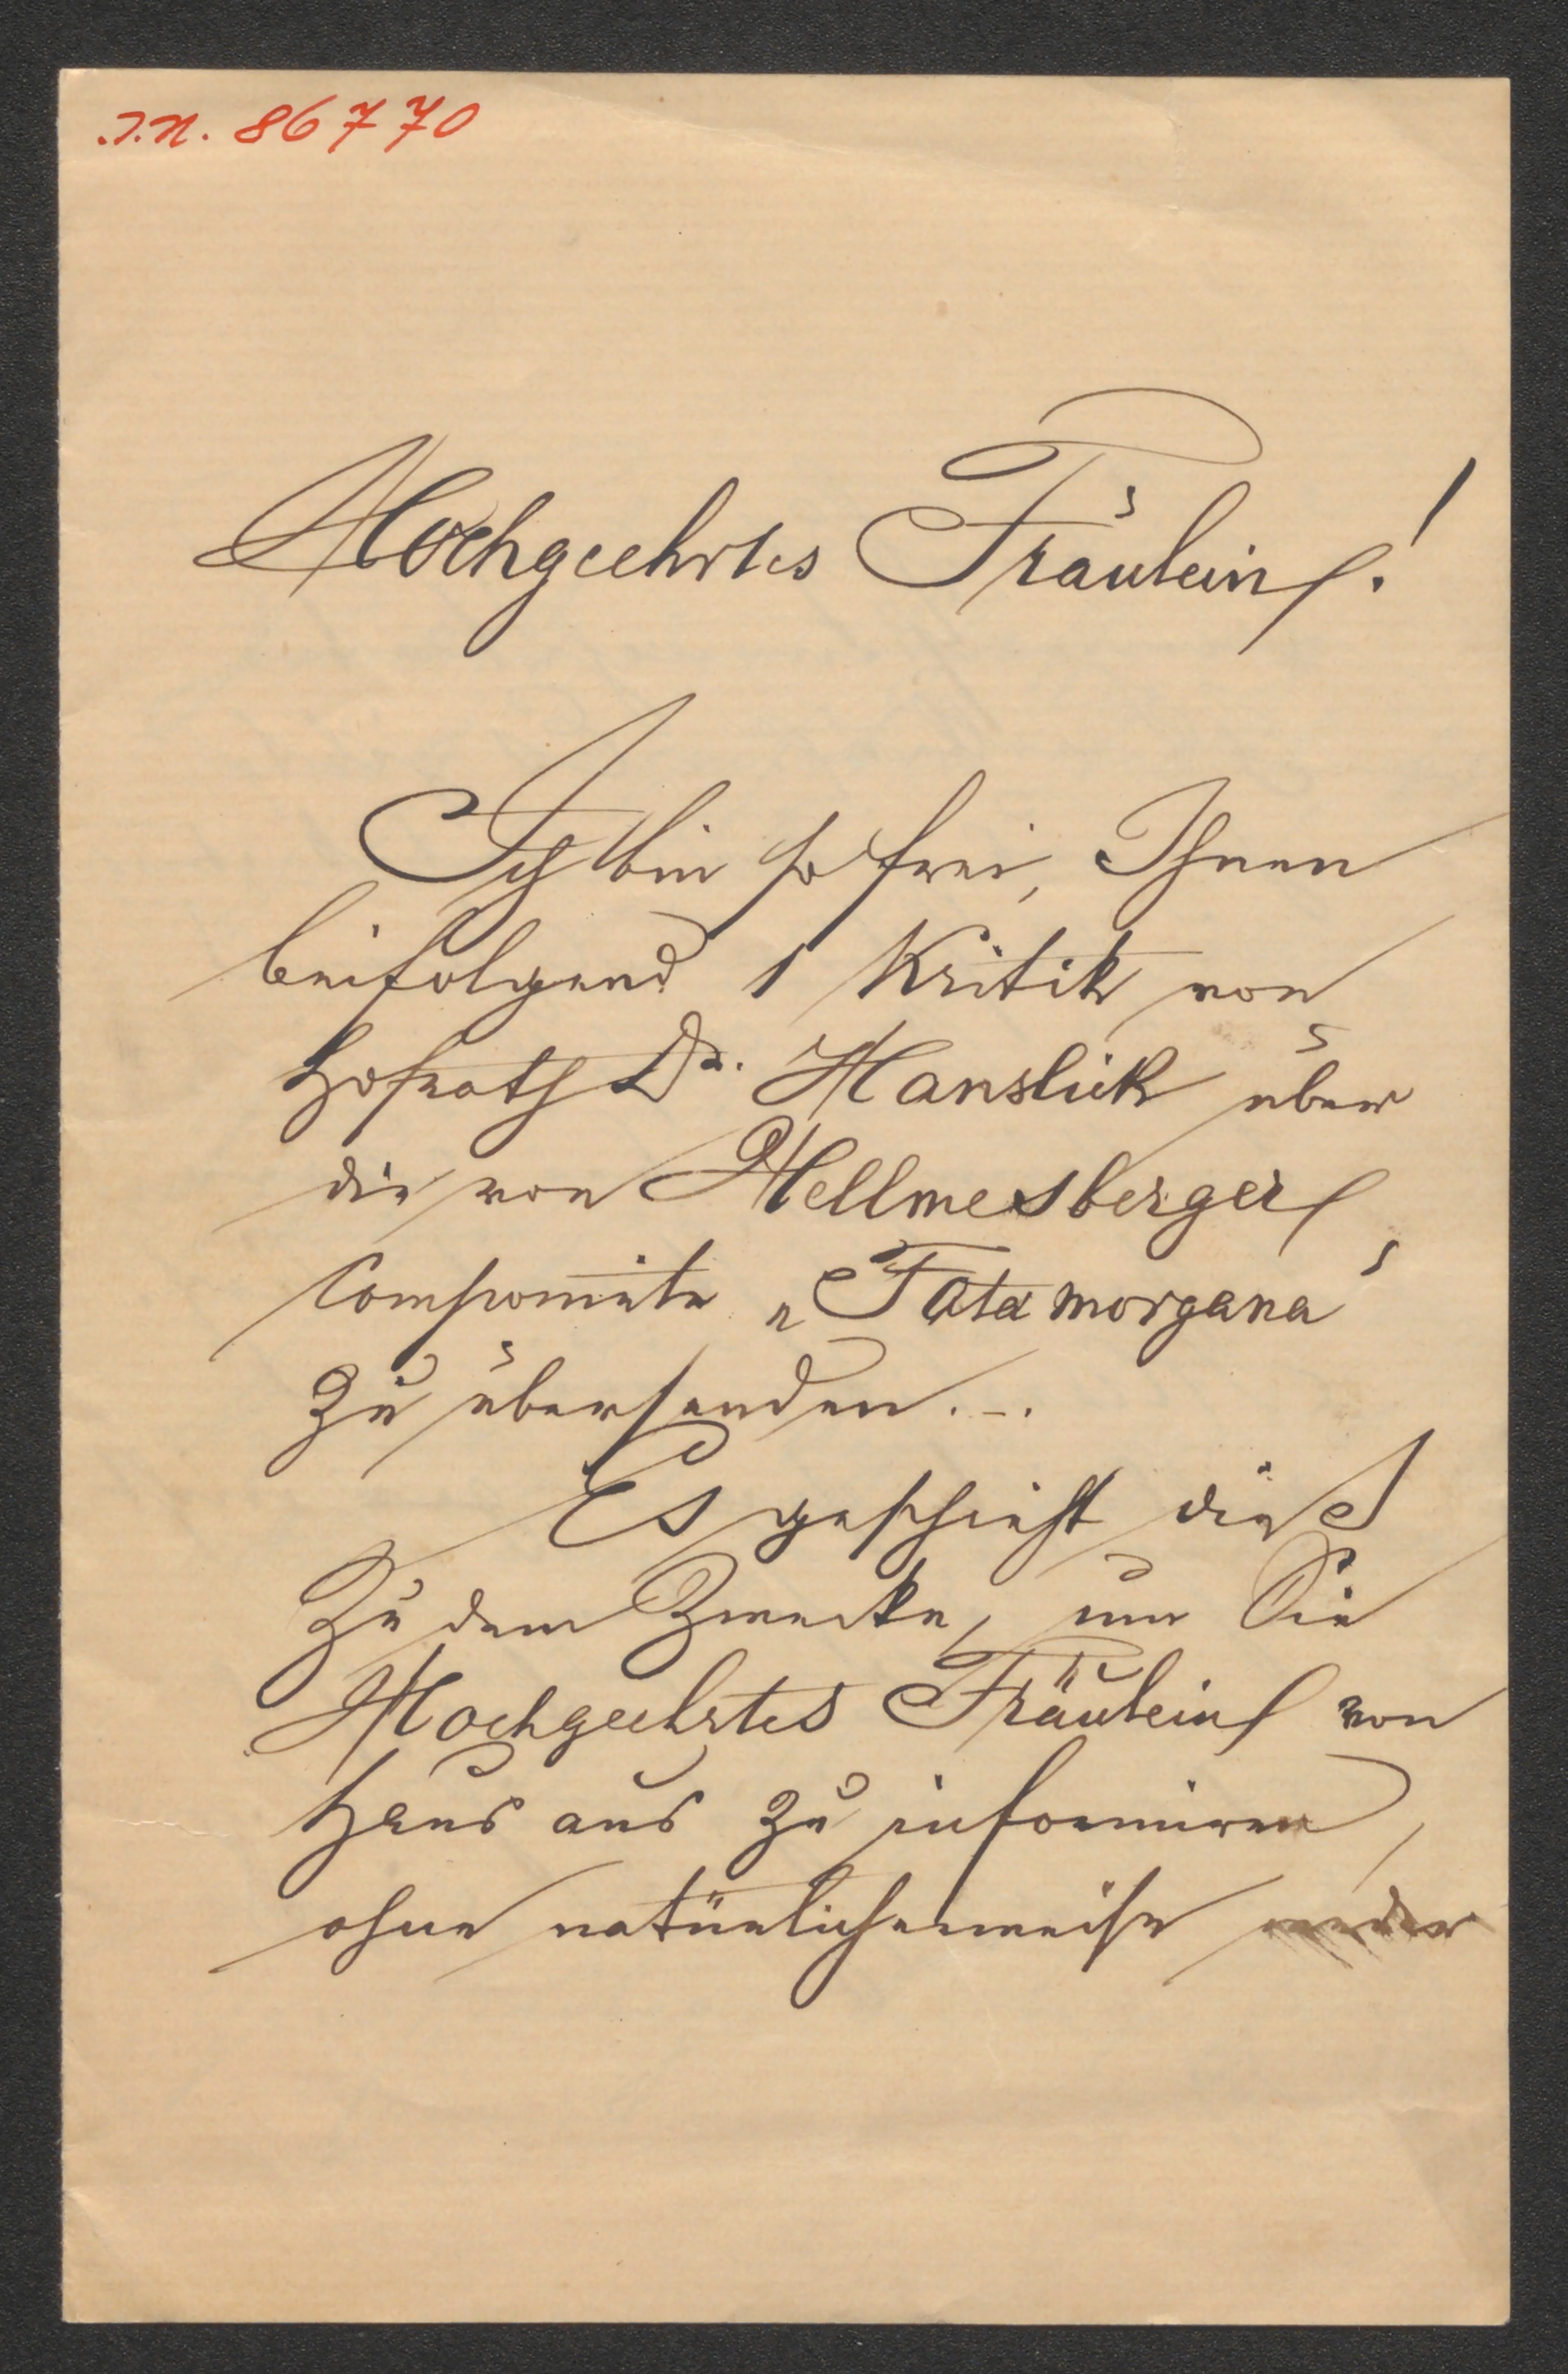 I.N. 86770
Hochgeehrtes Fräulein!
Ich bin so frei, Ihnen
beifolgend 1 Kritik von
Hofrath Dr. Hanslick über
die von Hellmesberger
componirte „Fata morgana“
zu übersenden. –.
Es geschieht dies
zu dem Zwecke, um Sie
Hochgeehrtes Fräulein von
Haus aus zu informiren,
ohne natürlicherweise weder